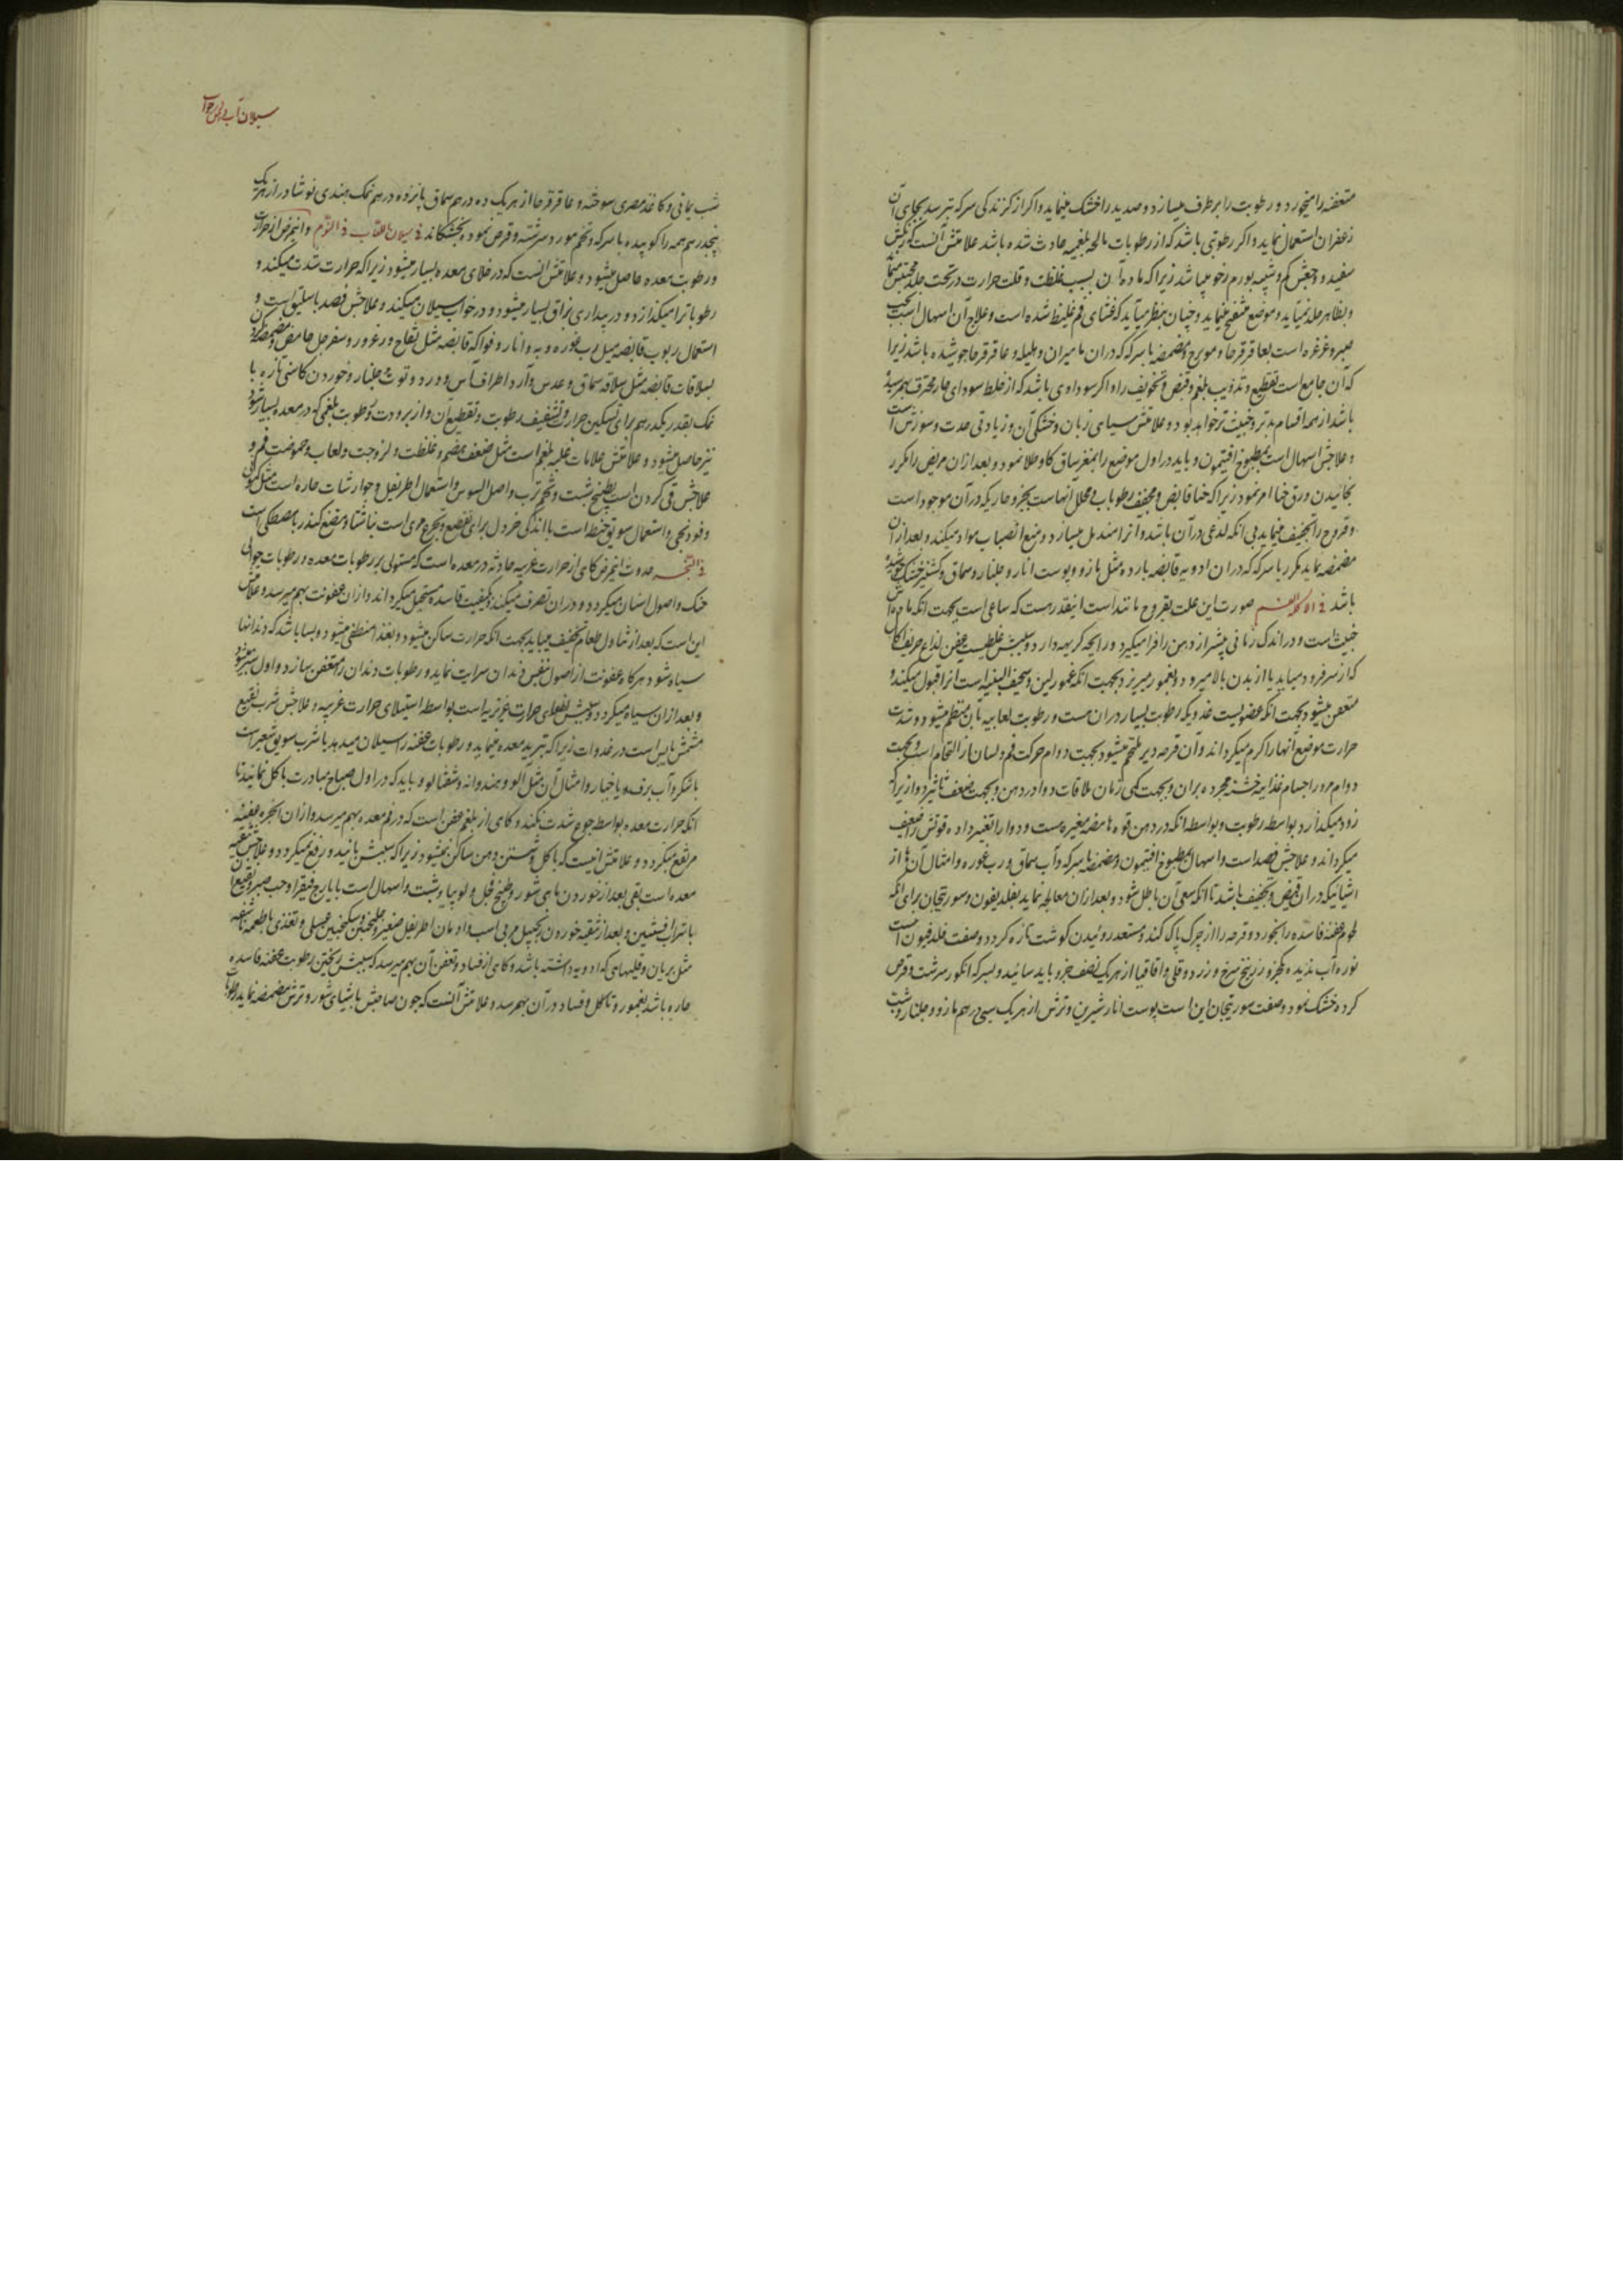 متعفنه را میخورد و رطوبت را برطرف میسازد و صدید را خشک مینماید و اگر از گزندگی سرکه بترسد بجای آن
زعفران استعمال نماید و اگر رطوبتی باشد که از رطوبات مالحه بلغمیه حادث شده باشد علامتش آنست که رنگش
سفید و وجعش کم و شبیه بورم رخو میباشد زیرا که ماده آن بسبب غلظت و قلت حرارت در تحت جلد محتبس
و بظاهر جلد نمیآید و موضع منتفخ مینماید و چنان بنظر میآید که غشای فم غلیظ شده است و علاج آن اسهال است بحب
صبر و غرغره است بعاقرقرحا و مویزج و مضمضه با سرکه که در آن مامیران و هلیله و عاقرقرحا جوشیده باشد زیرا
که آن جامع است تقطیع و تذویب بلغم و قبض و تجفیف را و اگر سوداوی باشد که از خلط سودای حار محترق بهم رسیده
باشد از همه اقسام بدتر و خبیث‌تر خواهد بود و علامتش سیاهی زبان و خشکی آن و زیادتی حدت و سوزش است
و علاجش اسهال است بمطبوخ افتیمون و باید در اول موضع را بمغز ساق گاو طلا نمود و بعد از آن مریض را مکرر
بخائیدن ورق حنا امر نمود زیرا که حنا قابض و مجفف رطوبات و محلل آنهاست بجزو حاریکه در آن موجود است
و قروح را تجفیف مینماید بی انکه لدغی در آن باشد و انرا مندمل میسازد و منع انصباب مواد میکند و بعد از آن
مضمضه نماید مکرر با سرکه که در ان ادویه قابضه بارده مثل مازو و پوست انار و جلنار و سماق و کشنیز خشک جوشیده
باشد فی اکلة الفم صورت این علت بقروح مانند است اینقدر هست که ساعی است بجهت انکه ماده اش
خبیث است و در اندک زمانی بیشتر از دهن را فرا میگیرد و رایحه کریهه دارد و سببش خلطیست عفن لذاع حریف اکال
که از سر فرود میاید یا از بدن بالا میرود و بعمور میریزد و بجهت انکه عمور لین و سخیف البنیه است انرا قبول میکند و
متعفن میشود بجهت انکه عضویست غددی که رطوبت بسیار در ان هست و رطوبت لعابیه بآن منتظم میشود و شدت
حرارت موضع آنها را گرم میگرداند و آن قرحه دیر ملتحم میشود بجهت دوام حرکت فم و لسان از التحام است و بجهت
دوام مرور اجسام غذاییه خشنه مجرده بر ان و بجهت کمی زمان ملاقات دوا در دهن و بجهت ضعف تاثیر دوا زیرا که
زود میگدازد بواسطه رطوبت و بواسطه انکه در دهن قوه هاضمه مغیره هست و دوا را تغییر داده قوتش را ضعیف
میگرداند و علاجش فصد است و اسهال بمطبوخ افتیمون و مضمضه با سرکه و آب سماق و رب غوره و امثال آن از
اشیائیکه در ان قبض و تجفیف باشد تا انکه سعی آن باطل شود و بعد از ان معالجه نماید بفلدفیون و سورتیجان برای انکه
لحوم عفنه فاسده را بخورد و قرحه را از چرک پاک کند و مستعد روئیدن گوشت تازه گردد و صفت فلدفیون اینست
نوره آب ندیده یکجزو زرنیخ سرخ و زرد و قلی و اقاقیا از هر یک نصف جزو باید سائید و بسرکه انگور سرشت و قرص
کرده خشک نمود و صفت سورتیجان این است پوست انار شیرین و ترش از هر یک سی درهم مازو و جلنار و شب
سیلان آب دهن در خواب
شب یمانی و کاغذ مصری سوخته و عاقرقرحا از هر یک ده درهم سماق پانزده درهم نمک هندی نوشادر از هر یک
پنجدرهم همه را کوبیده با سرکه و تخم مورد سرشته و قرص نموده بخشکانند فی سیلان اللعاب فی النوم و اینمرض از حرارت
و رطوبت معده حاصل میشود و علامتش انست که در خلای معده بسیار میشود زیرا که حرارت شدت میکند و
رطوبات را میگدازد و در بیداری بزاق بسیار میشود و در خواب سیلان میکند و علاجش فصد باسلیق است و
استعمال ربوب قابضه مثل رب غوره و به و انار و فواکه قابضه مثل تفاح و زعرور و سفرجل حامض و مضمضه کردن
بسلاقات قابضه مثل سلاقه سماق و عدس و آرد اطراف آس و ورد و توث و جلنار و خوردن کاسنی تازه با
نمک بقدر یکدرهم برای تسکین حرارت و تنشیف رطوبت و تقطیع آن و از برودت و رطوبت بلغمی که در معده بسیار شود
نیز حاصل میشود و علامتش علامات غلبه بلغم است مثل ضعف هضم و غلظت و لزوجت و لعاب و حموضت فم و
علاجش قی کردن است بطبیخ شبت و تخم ترب و اصل السوس و استعمال اطریفل و جوارشات حاره است مثل کمونی
و فودنجی و استعمال سویق حنطه است با اندکی خردل برای تقطیع و تجرع مری است ناشتا و مضغ کندر با مصطکی است
فی البخر حدوث اینمرض گاهی از حرارت غریبه حادثه در معده است که مستولی بر رطوبات معده و رطوبات حوالی
حنک و اصول اسنان میگردد و در ان تصرف میکند و بکیفیت فاسده مستحیل میگرداند و از ان عفونت بهم میرسد و علامتش
این است که بعد از تناول طعام تخفیف مییابد بجهت انکه حرارت ساکن میشود و بغذا منطفی میشود و بسا باشد که دندانها
سیاه شود هرگاه عفونت از اصول بنفس دندان سرایت نماید و رطوبات دندان را متعفن سازد و اول سبز میشود
و بعد از ان سیاه میگردد و سببش انطفای حرارت غریزیه است بواسطه استیلای حرارت غریبه و علاجش شرب نقیع
مشمش یابس است در غدوات زیرا که تبرید معده مینماید و رطوبات عفنه را سیلان میدهد یا شرب سویق شعیر است
با شکر و آب برف و یا خیار و امثال آن مثل آلو و هندوانه و شفتالو و باید که در اول صباح مبادرت باکل نمایند تا
انکه حرارت معده بواسطه جوع شدت نکند و گاهی از بلغم عفن است که در فم معده بهم میرسد و از ان ابخره عفنه
مرتفع میگردد و علامتش اینست که باکل و شستن دهن ساکن نمیشود زیرا که سببش بانها نمیرسد و رفع نمیگردد و علاجش تنقیه
معده است بقی بعد از خوردن ماهی شور و طبیخ فجل و لوبیا و شبت و اسهال است بایارج فیقرا و حب صبر و نقیع
با شراب افسنتین و بعد از تنقیه خوردن زنجبیل مربی است و ادمان اطریفل صغیر و گلنجبین و سکنجبین عسلی و تغذی باطعمه ناشفه
مثل بریان و قلیهای که ادویه داشته باشد و گاهی از فساد و تعفن آن بهم میرسد که سببش ریختن رطوبت عفنه فاسده
حاره باشد بعمور و تاکل و فساد در آن بهم رسد و علامتش آنست که چون صاحبش باشیای شور و ترش مضمضه نماید